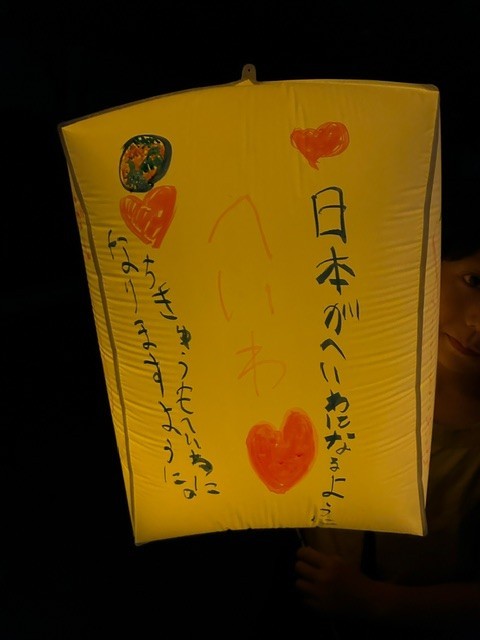 日本がへいわになるように
へいわ
ちきゅうもへいわに
なりますように。